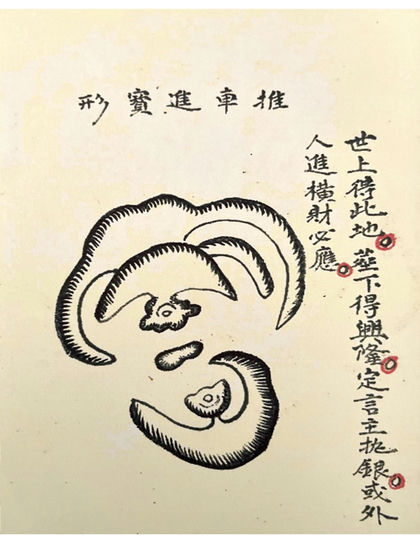 推車進寳形
世上得此地。塟下得興隆。定言主抛銀。或外
人進橫財必應。